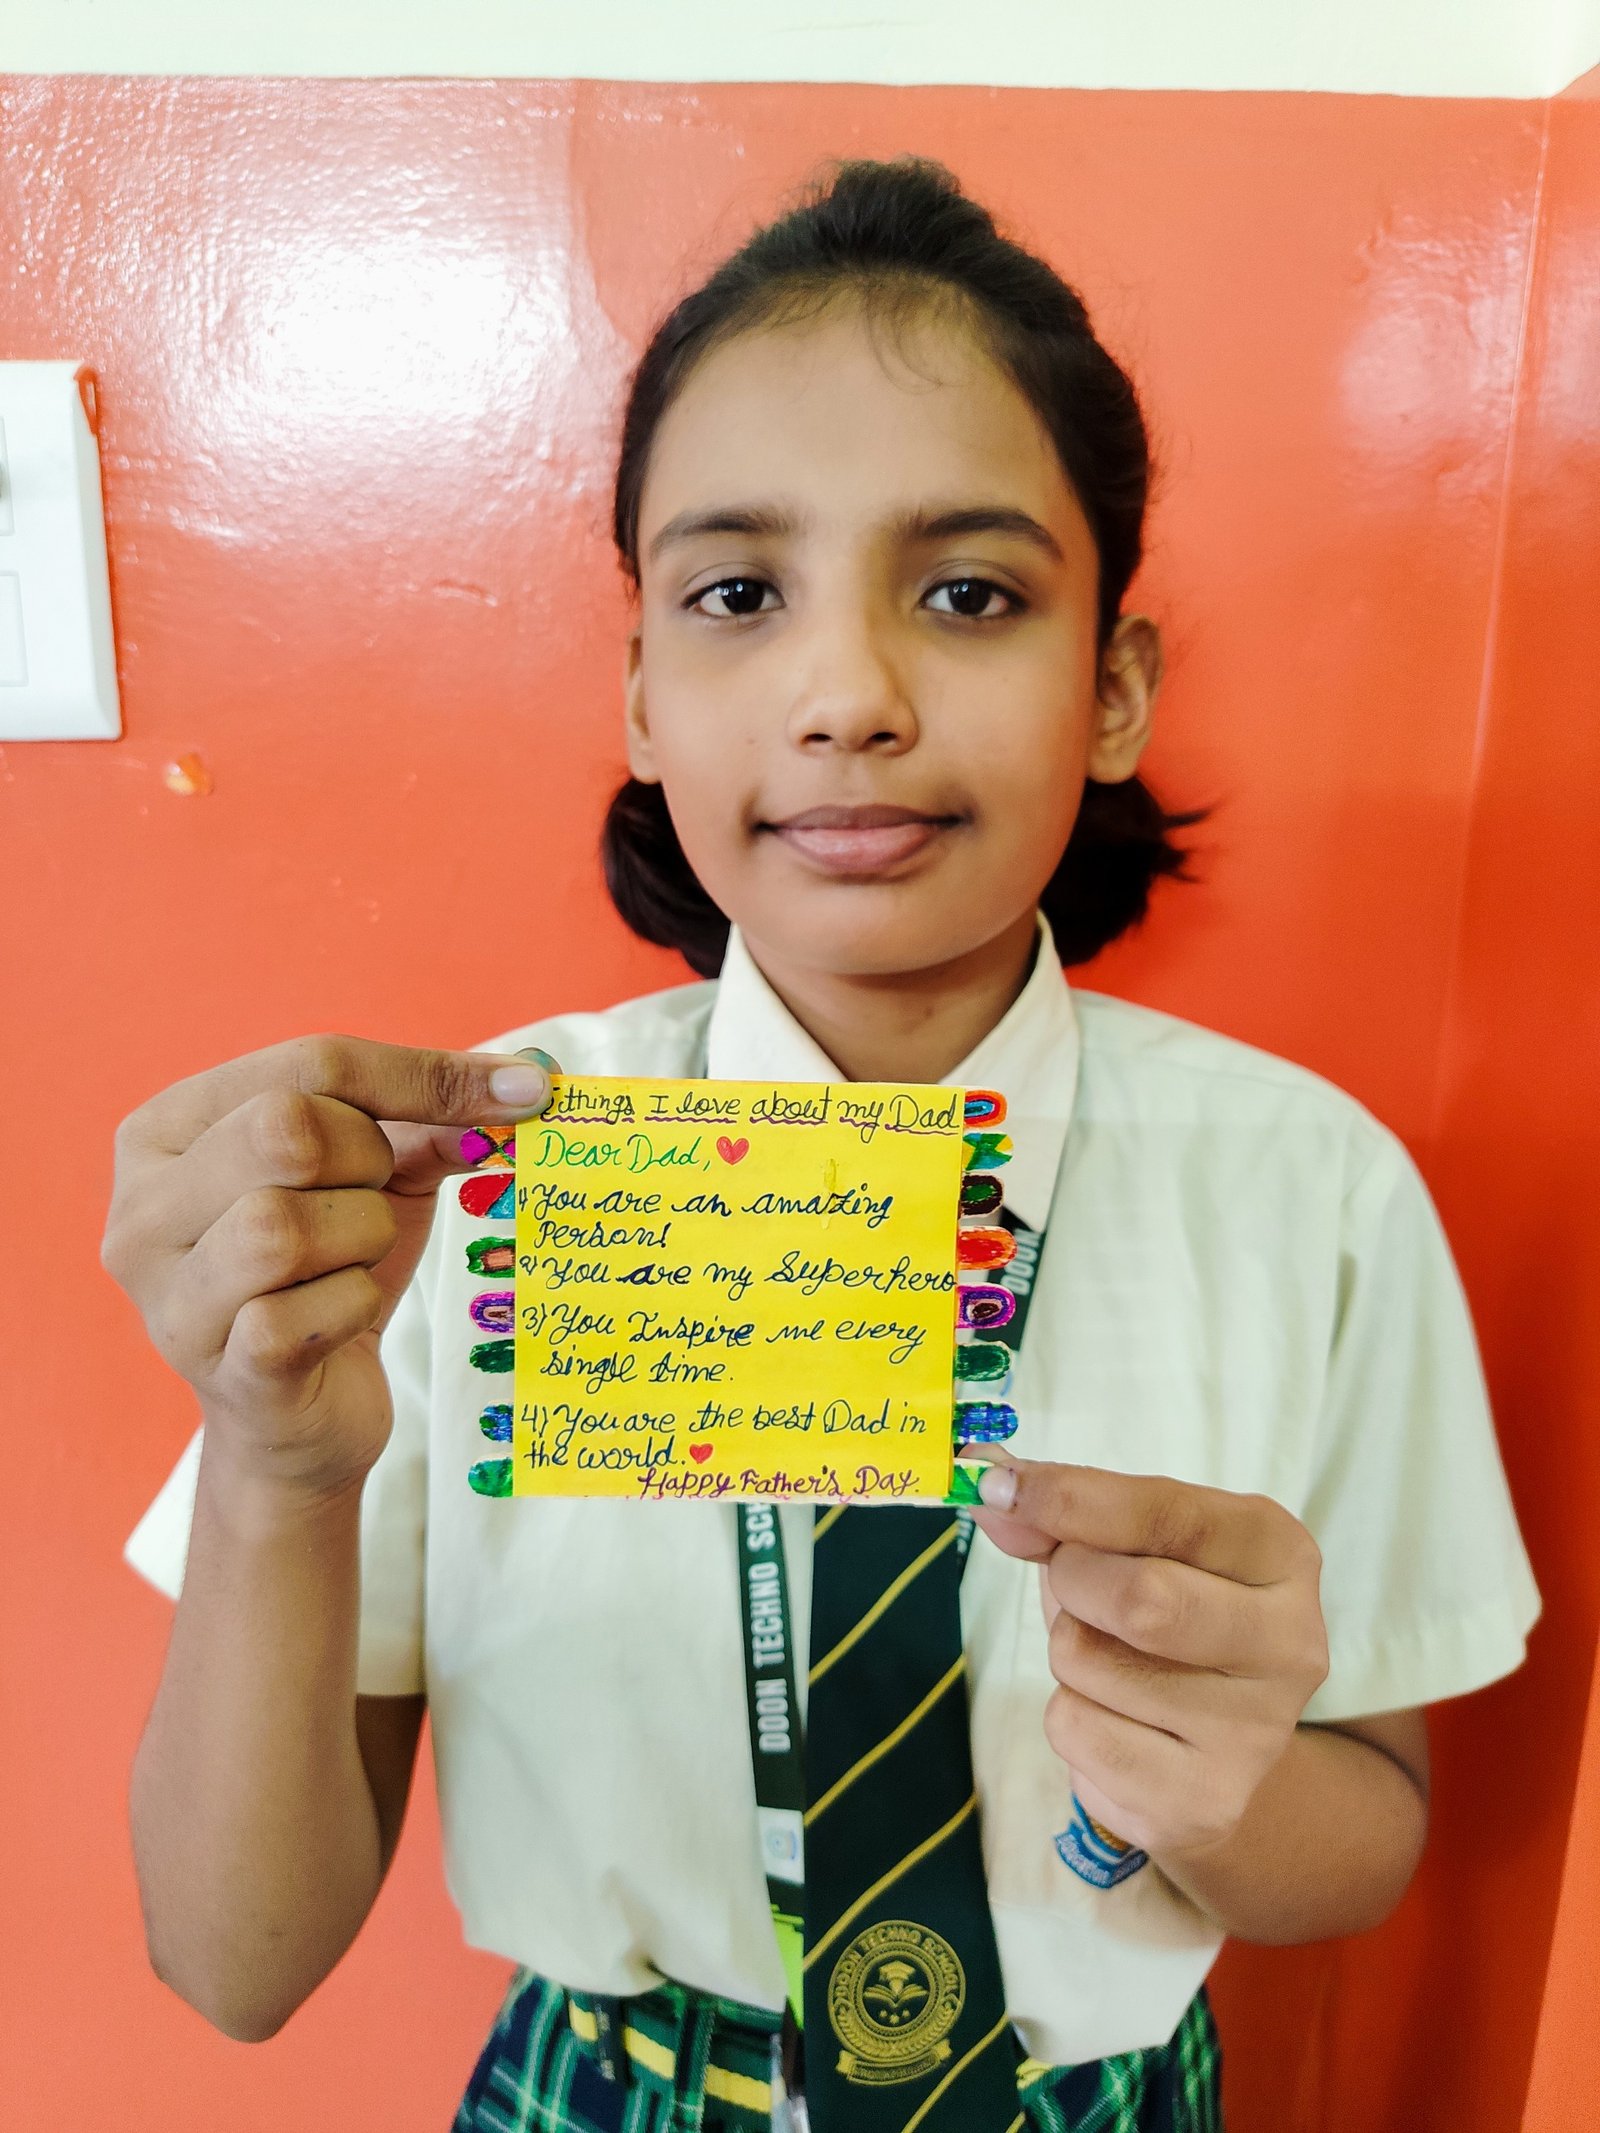 things I love about my Dad
Dear Dad,
1) You are an amazing
Person!
2) You are my Superhero
3) You Inspire me every
single time.
4) You are the best Dad in
the world.
Happy Father's Day.
DOON
DOON TECHNO SC
DOON TECHNO SCHOOL